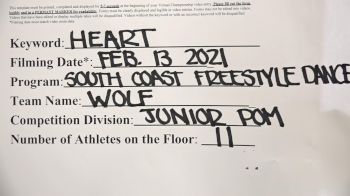 This template must be printed, completed and displayed for 3-5 seconds at the beginning of your Virtual Championship video entry. Please fill out the form
legibly and in a PERMANENT MARKER for readability. Forms must be clearly displayed and legible in video entries. Forms may not be edited into videos.
Videos that have been edited or display multiple videos will be disqualified. Videos without the keyword or with an incorrect keyword will be disqualified.
Keyword: HEART
Filming Date*: FEB. 13 2021
Program: SOUTH COAST FREESTYLE DANCE
Team Name: WOLF
Competition Division: JUNIOR POM
Number of Athletes on the Floor: 11